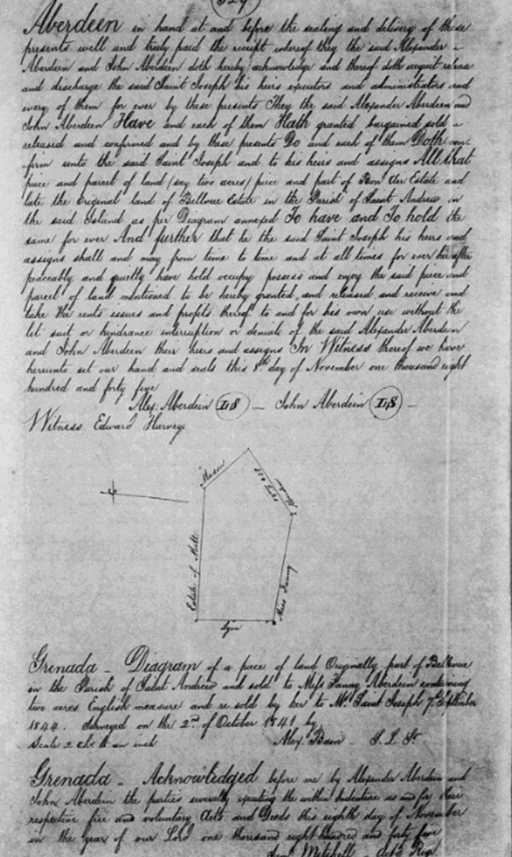 Aberdeen in hand at and before the sealing and delivery of these
presents well and truly paid the receipt whereof they the said Alexander
Aberdeen and John Aberdeen doth hereby acknowledge and thereof doth acquit release
and discharge the said Saint Joseph his heirs executors and administrators and
every of them for ever by these presents They the said Alexander Aberdeen and
John Aberdeen Have and each of them Hath granted bargained sold
released and confirmed and by these presents Do and each of them Doth con
firm unto the said Saint Joseph and to his heirs and assigns All that
piece and parcel of land (say two acres) piece and part of Bon Air Estate and
late the Original land of Bellevue Estate in the Parish of Saint Andrew in
the said Island as per Diagram annexed To have and To hold the
same for ever And further that he the said Saint Joseph his heirs and
assigns shall and may from time to time and at all times for ever hereafter
peaceably and quietly have hold occupy possess and enjoy the said piece and
parcel of land mentioned to be hereby granted and released and receive and
take the rents issues and profits thereof to and for his own use without the
let suit or hindrance interruption or denial of the said Alexander Aberdeen
and John Aberdeen their heirs and assigns In Witness thereof we have
hereunto set our hand and seals this 8th day of November one thousand eight
hundred and forty five
Alex. Aberdeen LS — John Aberdein LS —
Witness Edward Harvey
Mason
Estate of
Miss Fanny
Grenada — Diagram of a piece of land Originally part of Bellevue
in the Parish of Saint Andrew and sold to Miss Fanny Aberdeen containing
two acres English measure and resold by her to Mr. Saint Joseph 7th September
1844. Surveyed on the 2nd of October 1841 by
Scale 2 chs. to an inch Alexr. Bain S. L. Sr.
Grenada — Acknowledged before me by Alexander Aberdeen and
John Aberdeen the parties severally executing the within Indenture as and for their
respective free and voluntary Acts and Deeds this eighth day of November
in the year of our Lord one thousand eight hundred and forty five
Mitchell Actg. Regr.